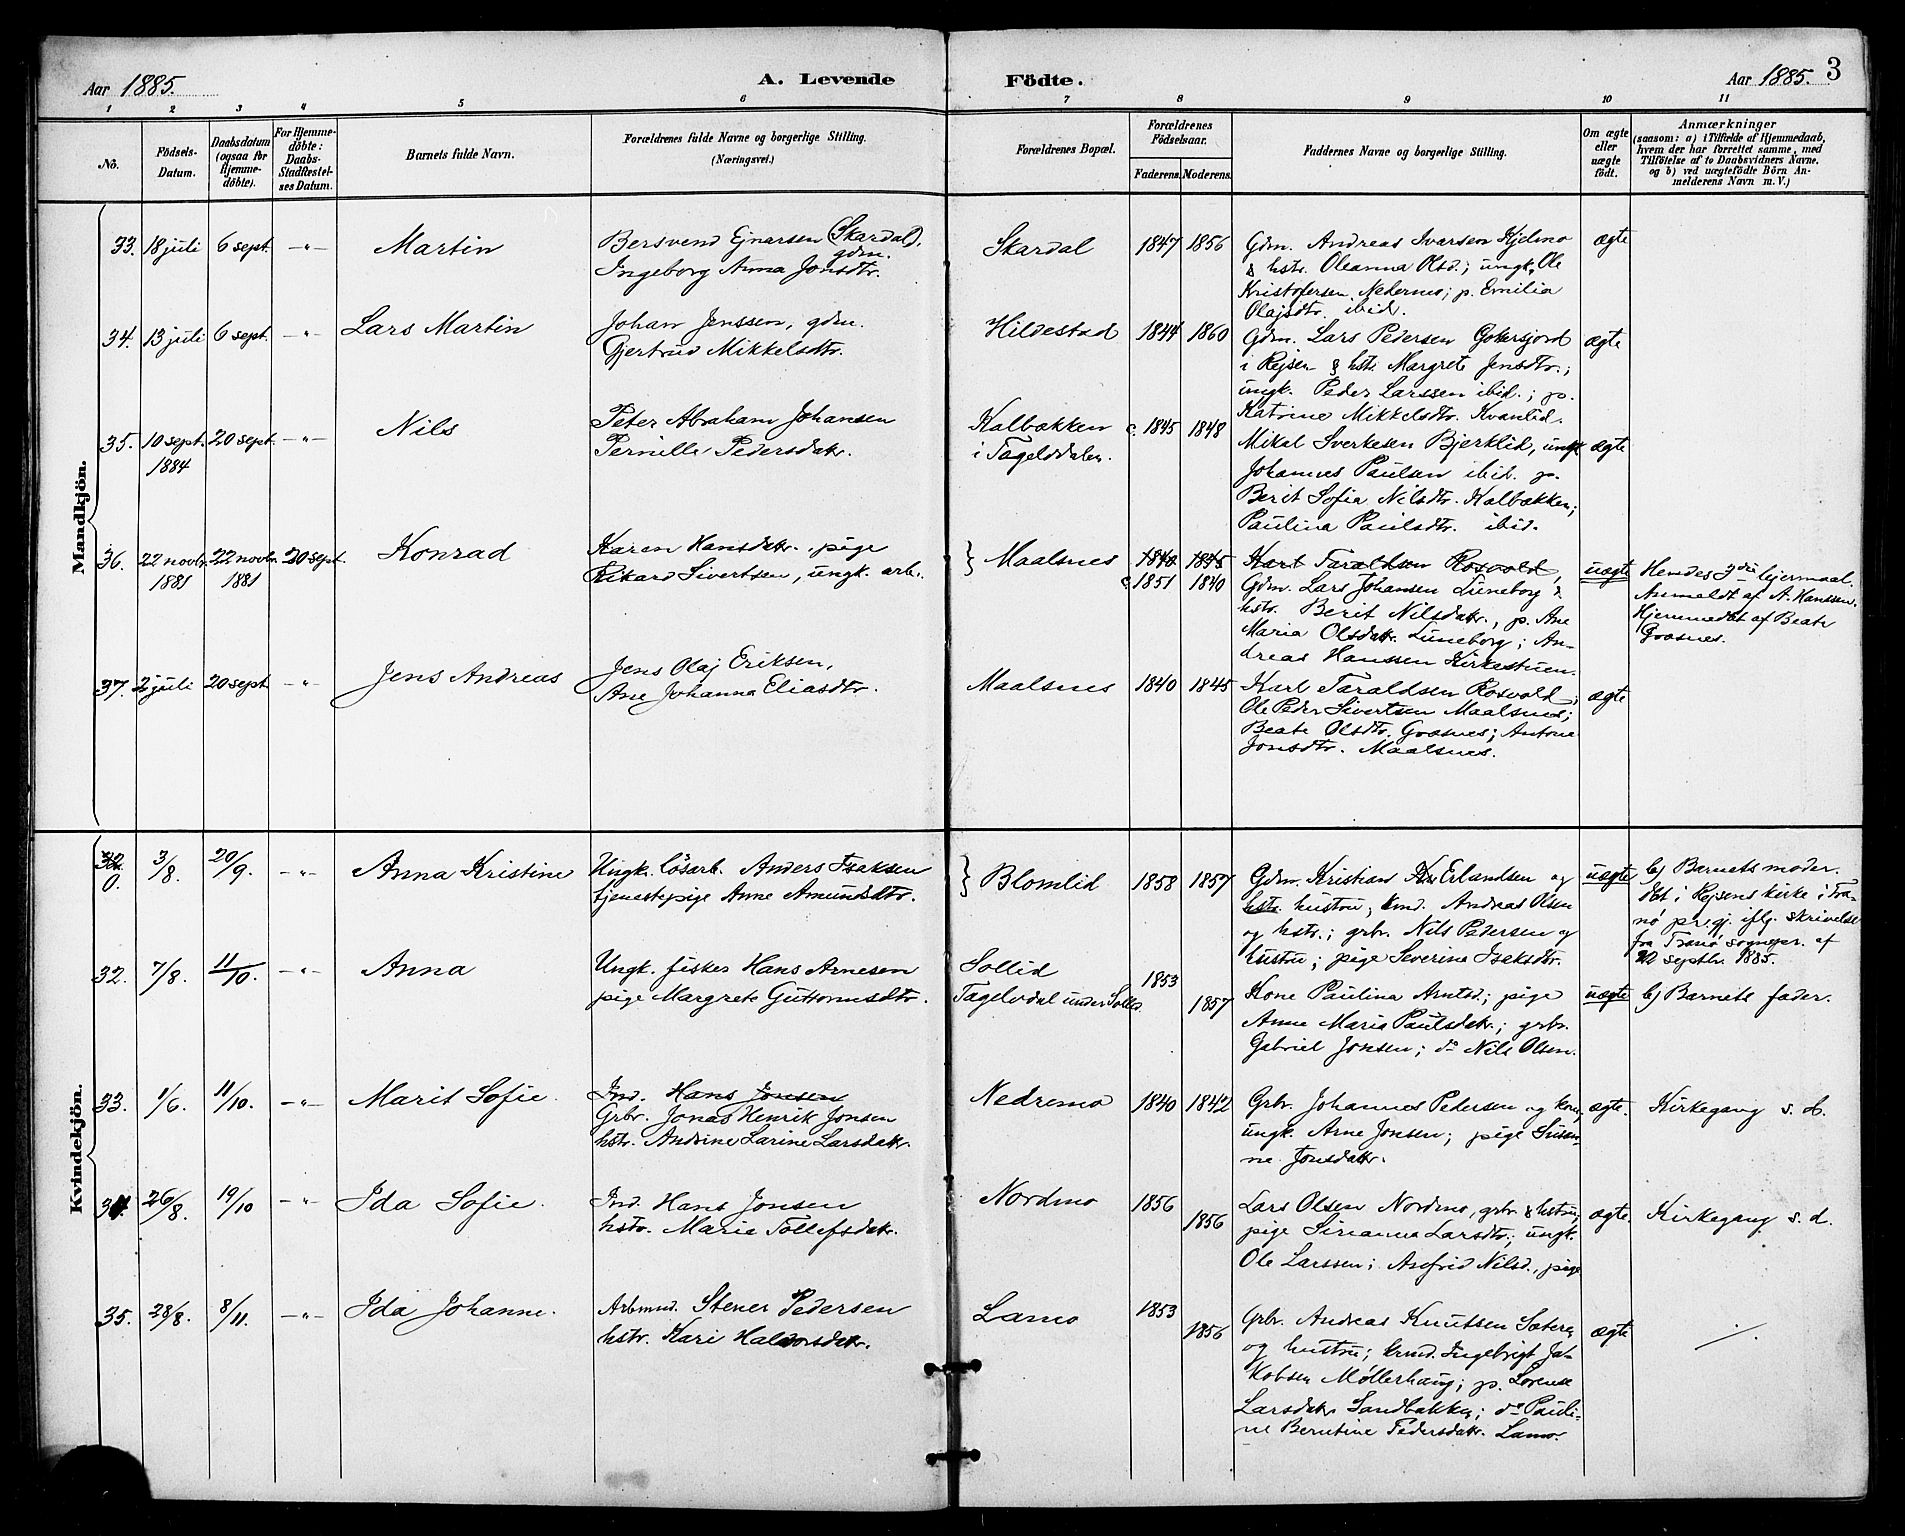 Aar 1885.
A. Levende
Födte.
Aar 1885.
3
1 2 3 4 5 6 7 8 9 10 11
No.
Födsels-
Datum.
Daabsdatum
(ogsaa for
Hjemme-
döbte).
For Hjemme-
döbte:
Daabs-
Stadfæstel-
ses Datum.
Barnets fulde Navn.
Forældrenes fulde Navne og borgerlige Stilling.
(Næringsvei.)
Forældrenes Bopæl.
Forældrenes
Födselsaar.
Faderens.
Moderens.
Faddernes Navne og borgerlige Stilling.
Om ægte
eller
uægte
födt.
Anmærkninger
(saasom: a) i Tilfælde af Hjemmedaab,
hvem der har forrettet samme, med
Tilföielse af to Daabsvidners Navne.
og b) ved uægtefödte Börn An-
melderens Navn m. V.)
Mandkjön.
33. 18 juli 6 sept. -"- Martin
Bersvend Ejnarsen (Skardal),
gdm.
Ingeborg Anna Jonsdtr.
Skardal 1847 1856
Gdm. Andreas Ivarsen Kjelmo
& hstr. Oleanna Olsd.; ungk. Ole
Kristofersen Nedernes; p. Emilia
Olajsdtr. ibid.
ægte
34. 13 juli 6 sept. -"- Lars Martin
Johan Jenssen, gdm.
Gjertrud Mikkelsdtr.
Hildestad 1844 1860
Gdm. Lars Pedersen Gokersjord
i Rejsen & hstr. Margrete Jensdtr.;
ungk. Peder Larssen ibid.; p.
Katrine Mikkelsdtr. Kvanlid.
ægte
35. 10 sept. 20 sept. -"- Nils
1884
Peter Abraham Johansen
Pernille Pedersdatr.
Kalbækken
i Tagelvdalen.
c. 1845 1848
Mikal Sverkesen Bjerklid, ungk.
Johannes Paulsen ibid. p.
Berit Sofia Nilsdtr. Kalbækken;
Paulina Paulsdtr. ibid.
ægte
36. 22 novbr. 22 novbr. 20 sept. Konrad
1881 1881
Karen Hansdatr., pige
Rikard Sivertsen, ungk. arb.
} Maalsnes 1840 1845
c. 1851 1840
Karl Taraldsen Rosvold,
Gdm. Lars Johansen Luneborg &
hstr. Berit Nilsdatr., p. Ane
Maria Olsdatr. Luneborg; An-
dreas Hanssen Kirkestuen.
uægte
Hendes 3die lejermaal.
Anmeldt af A. Hanssen.
Hjemmedøbt af Beate
Graasnes.
37. 2 juli 20 sept -"- Jens Andreas
Jens Olaj Eriksen,
Ane Johanna Eliasdtr.
Maalsnes 1840 1845
Karl Taraldsen Rosvold;
Ole Peder Sivertsen Maalsnes;
Beate Olsdtr. Graasnes; Antone
Jonsdtr. Maalsnes.
ægte
Kvindekjön.
0. 3/8. 20/9. -"- Anna Kristine
Ungk. løsarb. Anders Isaksen
tjenestepige Anne Amundsdtr.
} Blomlid 1858 1857
Gdm. Kristian Erlandsen og
hstr. hustru; kmd. Andreas Olsen
og hstr.; grbr. Nils Pedersen og
hustru; pige Severine Isaksdtr.
uægte
b) Barnets moder.
Døbt i Rejsens kirke i Tra-
nø prgj. iflg. skrivelse
fra Tranø sognepr. af
22 septbr. 1885.
32. 7/8. 11/10. -"- Anna
Ungk. fisker Hans Arnesen
pige Margrete Guttormsdtr.
Sollid 1853
Tagelvdal under Sollid 1857
Kone Paulina Arntsd.; pige
Anne Maria Paulsdatr.; grbr.
Gabriel Jonsen; do Nils Olsen.
uægte
b) Barnets fader.
33. 1/6. 11/10. -"- Marit Sofie.
Ind. Hans Jonsen
Grbr. Jonas Henrik Jonsen
hstr. Andrine Larine Larsdatr.
Nedremo 1840 1842
Grbr. Johannes Pedersen og kone;
ungk. Arne Jonsen; pige Susan-
ne Jonsdatr.
ægte.
Kirkegang s. d.
34. 26/8. 19/10 -"- Ida Sofie.
Ind. Hans Jonsen
hstr. Marie Tollefsdatr.
Nordmo 1856
1856
Lars Olsen Nordmo, grbr. & hstru;
pige Sirianna Larsdtr.; ungk.
Ole Larssen; Asefrid Nilsd., pige
ægte.
Kirkegang s. d.
35. 28/8. 8/11. -"- Ida Johanne.
Arbmd. Stener Pedersen
hstr. Kari Halvorsdatr.
Lamo 1853
1856
Grbr. Andreas Knutsen Sæteren
og hustru; krmd. Ingebrigt Ja-
kobsen Møllerhaug; p. Lorense
Larsdatr. Sandbakken; do Pauli-
ne Berntine Pedersdatr. Lamo.
ægte
./.